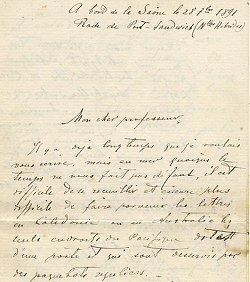 A bord de la Saône le 28 7bre 1891
Rade de Port-Sandwich (Nlles Hébrides)
Mon cher professeur,
Il y a déjà longtemps que je voulais
vous écrire, mais en mer quoique le
temps ne vous fait pas défaut, il est
difficile de se recueillir et encore plus
difficile de faire parvenir les lettres
en Calédonie ou en Australie les
seuls endroits du Pacifique dotés
d'une poste et qui sont desservis par
des paquebots réguliers. -